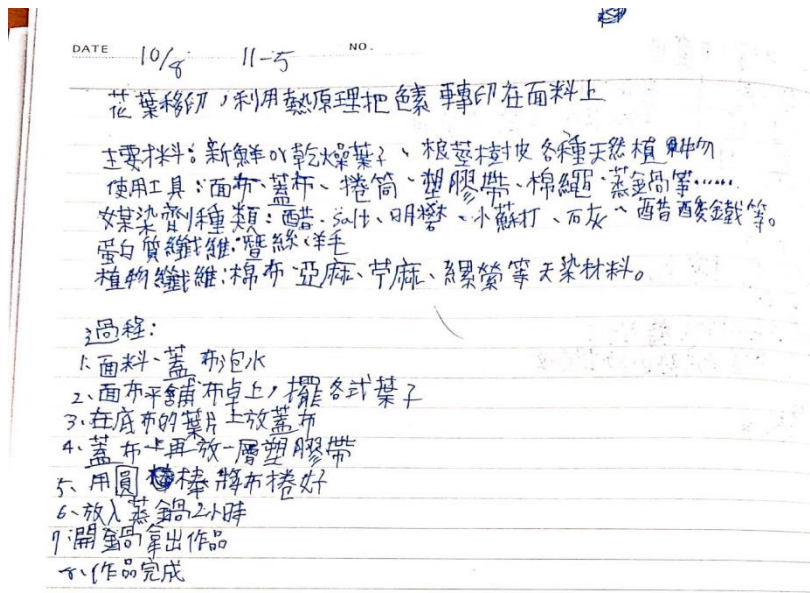 DATE 10/8 11-5 NO.
花葉移印，利用熱原理把色素轉印在面料上
主要材料：新鮮or乾燥葉子、根莖樹皮各種天然植物
使用工具：面布、蓋布、捲筒、塑膠帶、棉繩、蒸鍋等……
媒染劑種類：醋、salt、明礬、小蘇打、石灰、醋酸鐵等。
蛋白質纖維：蠶絲、羊毛
植物纖維：棉布、亞麻、苧麻、縲縈等天染材料。
過程：
1、面料、蓋布泡水
2、面布平舖布桌上，擺各式葉子
3、在底布的葉片上放蓋布
4、蓋布上再放一層塑膠帶
5、用圓棒將布捲好
6、放入蒸鍋2小時
7、開鍋拿出作品
8、作品完成